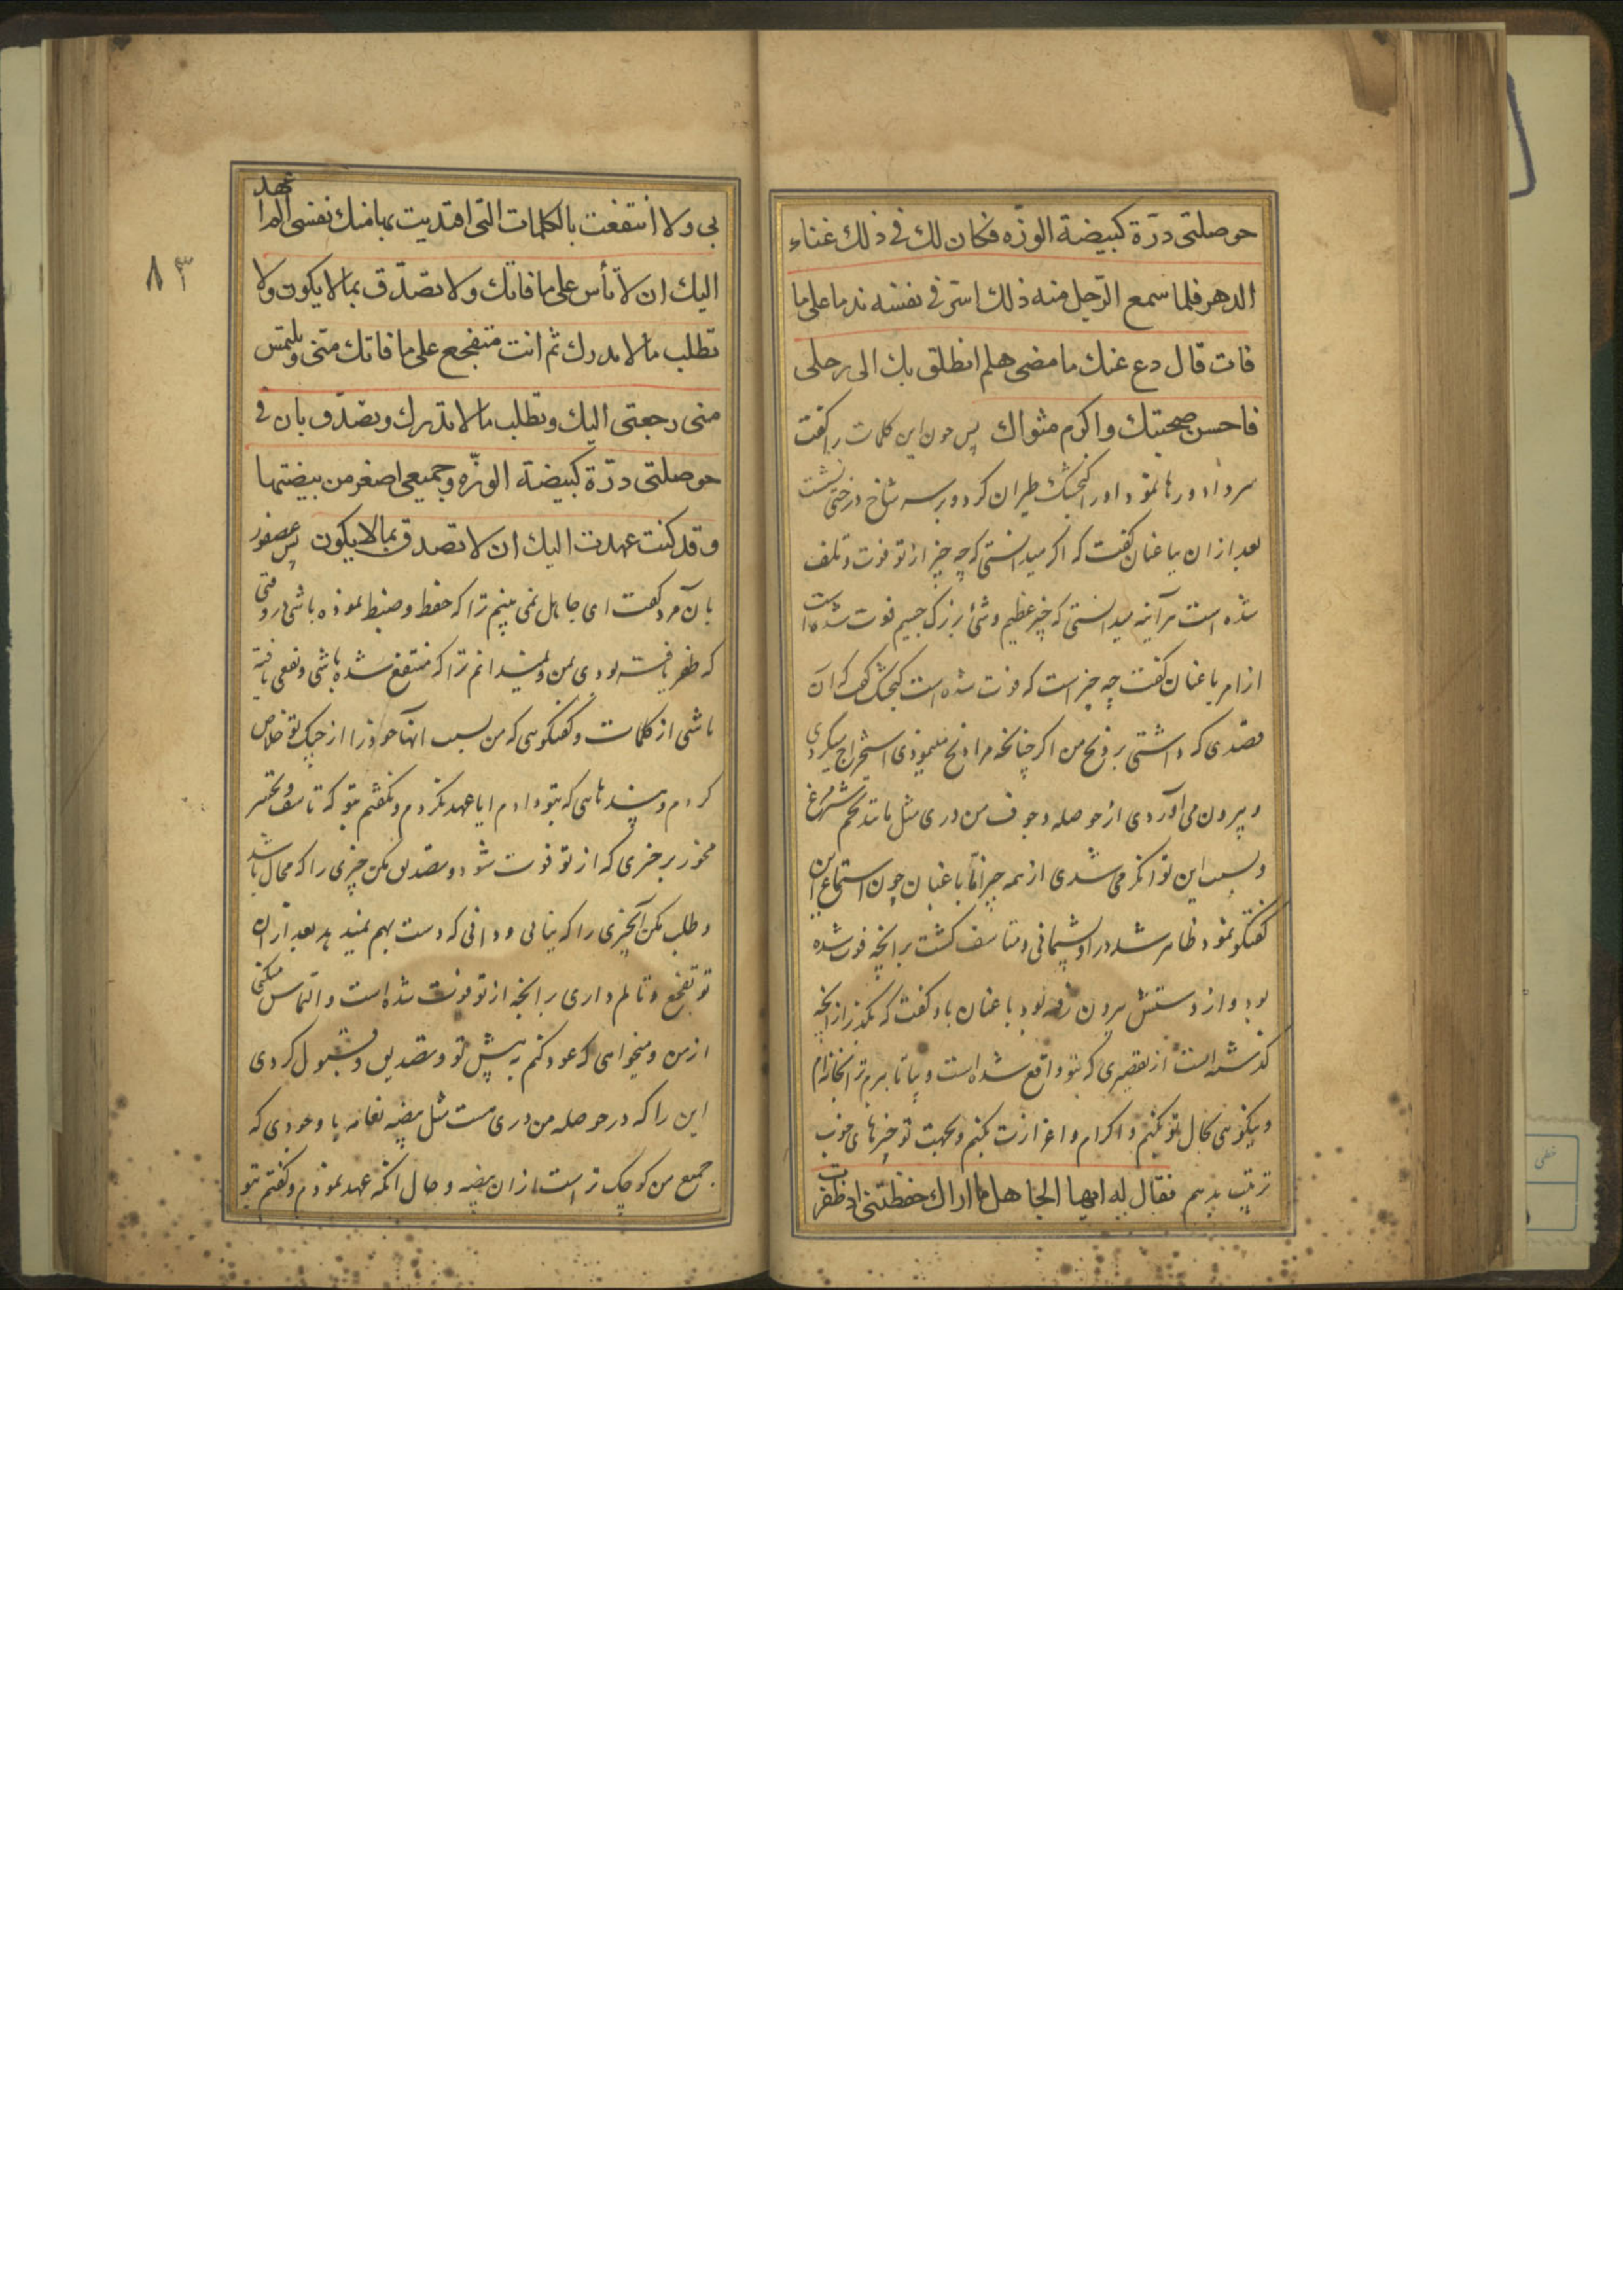 حوصلتی درّة کبیضة الوزّه فکان لك فی ذلك غناء
الدهر فلما سمع الرّجل منه ذلك استر فی نفسه ندما علی ما
فات قال دع عنك ما مضی هلم انطلق بك الی رحلی
فاحسن صحبتك واکرم مثواك پس چون این کلمات را گفت
سر داد و رها نمود او را کنجشك طیران کرد و بر سر شاخ درختی نشست
بعد از ان باغبان کفت که اکر میدانستی که چه چیز از تو فوت و تلف
شده است هر آینه میدانستی که چیز عظیم و شئ بزرک جسیم فوت شده است
ازامر باغبان کفت چه چیز است که فوت شده است کنجشك کفت که ان
قصدی که داشتی بر ذبح من اکر چنانچه مرا ذبح مینمودی استخراج میکردی
و بیرون می آوردی از حوصله و جوف من دری مثل مانند تخم شترمرغ
و بسبب این توانکر می شدی از همه چیز امّا باغبان چون استماع این
کفتکو نمود ظاهر شد در او پشیمانی و متاسف کشت بر انچه فوت شده
بود و از دستش بیرون رفه بود باغبان باو کفت که بکذر از انچه
کذشته است از تقصیری که بتو واقع شده است و بیا تا ببرم ترا بخانه ام
و نیکوئی بحال تو بکنم و اکرام و اعزازت بکنم و بجهت تو چیزهای خوب
ترتیب بدهم فقال له ایها الجاهل ما اراك حفظتنی اذ ظفرت
بی ولا انتفعت بالکلمات التی افتدیت بها منك نفسی الم اعهد
الیك ان لا تأس علی ما فاتك ولا تصدّق بما لا یکون ولا
تطلب ما لا تدرك ثم انت متفجع علی ما فاتك منّی و تلتمس
منی رجعتی الیك و تطلب ما لا تدرك و تصدّق بان فی
حوصلتی درّة کبیضة الوزّه و جمیعی اصغر من بیضتها
و قد کنت عهدت الیك ان لا تصدق بما لا یکون پس عصفور
بان مرد کفت ای جاهل نمی بینم ترا که حفظ و ضبط نموده باشی در وقتی
که ظفر یافته بودی بمن و نمیدانم ترا که منتفع شده باشی و نفعی یافته
باشی از کلمات و کفتکوئی که من بسبب انها خود را از چنک تو خلاص
کردم و پندهائی که بتو دادم ایا عهد نکردم و نکفتم بتو که تاسف و تحسر
مخور بر چیزی که از تو فوت شود و تصدیق مکن چیزی را که محال باشد
و طلب مکن آنچیزی را که نیابی و دانی که دست بهم نمیدهد بعد از ان
تو تفجع و تالم داری بر انچه از تو فوت شده است و التماس میکنی
از من و میخواهی که عود کنم به پیش تو و تصدیق و قبول کردی
این را که در حوصله من دری هست مثل بیضه نعامه با وجودی که
جمیع من کوچك تر است از ان بیضه و حال انکه عهد نمودم و کفتم بتو
۸۳